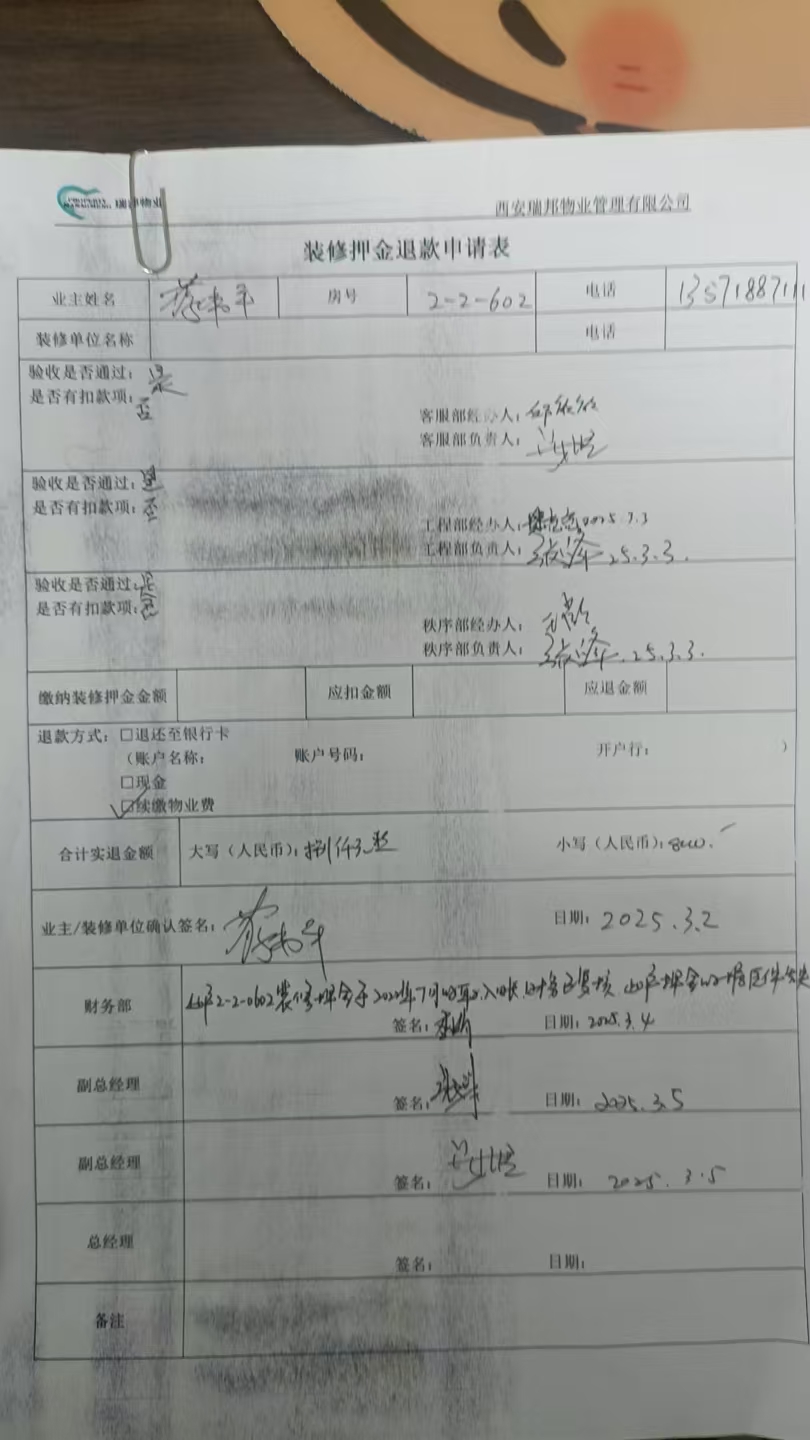 瑞邦物业
西安瑞邦物业管理有限公司
装修押金退款申请表
业主姓名 房号 2-2-602 电话 13571887111
装修单位名称 电话
验收是否通过：是
是否有扣款项：否
客服部经办人：
客服部负责人：
验收是否通过：是
是否有扣款项：否
工程部经办人： 2025.3.3
工程部负责人： 25.3.3.
验收是否通过：是
是否有扣款项：否
秩序部经办人：
秩序部负责人： 25.3.3.
缴纳装修押金金额 应扣金额 应退金额
退款方式：□退还至银行卡
（账户名称： 账户号码： 开户行： ）
□现金
☑续缴物业费
合计实退金额 大写（人民币）：捌仟元整 小写（人民币）：8000.
业主/装修单位确认签名： 日期：2025.3.2
财务部 此户2-2-0602装修押金于 年7月 入账
签名： 日期：2025.3.4
副总经理
签名： 日期：2025.3.5
副总经理
签名： 日期：2025.3.5
总经理
签名： 日期：
备注